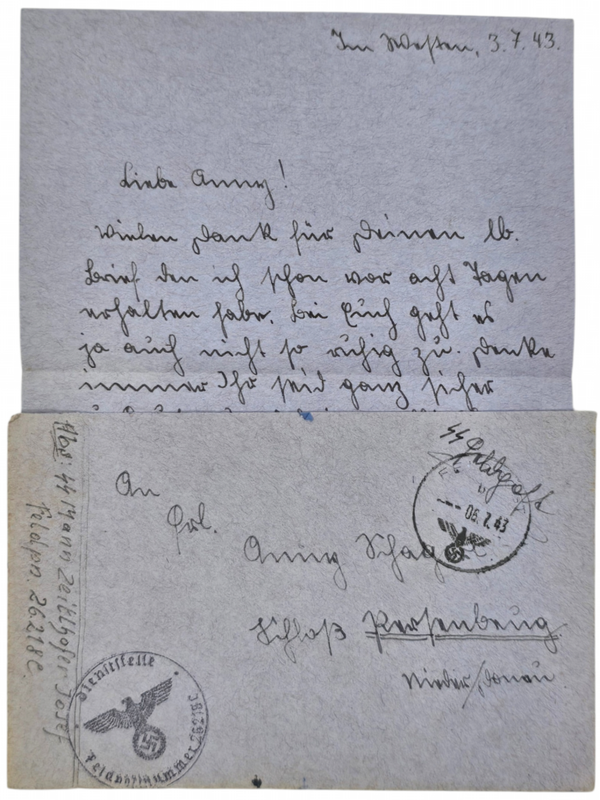 Im Westen, 3.7.43.
Liebe Anny!
Vielen Dank für Deinen lb.
Brief den ich schon vor acht Tagen
erhalten habe. Bei Euch geht es
ja auch nicht so ruhig zu. Denke
immer Ihr seid ganz sicher
SS Feldpost
06.7.43
An
Frl.
Anny
Schloß Persenbeug
Nieder/Donau
Abs: SS Mann Zeidlhofer Josef
Feldpn. 26218C.
Dienststelle
Feldpostnummer 26218C